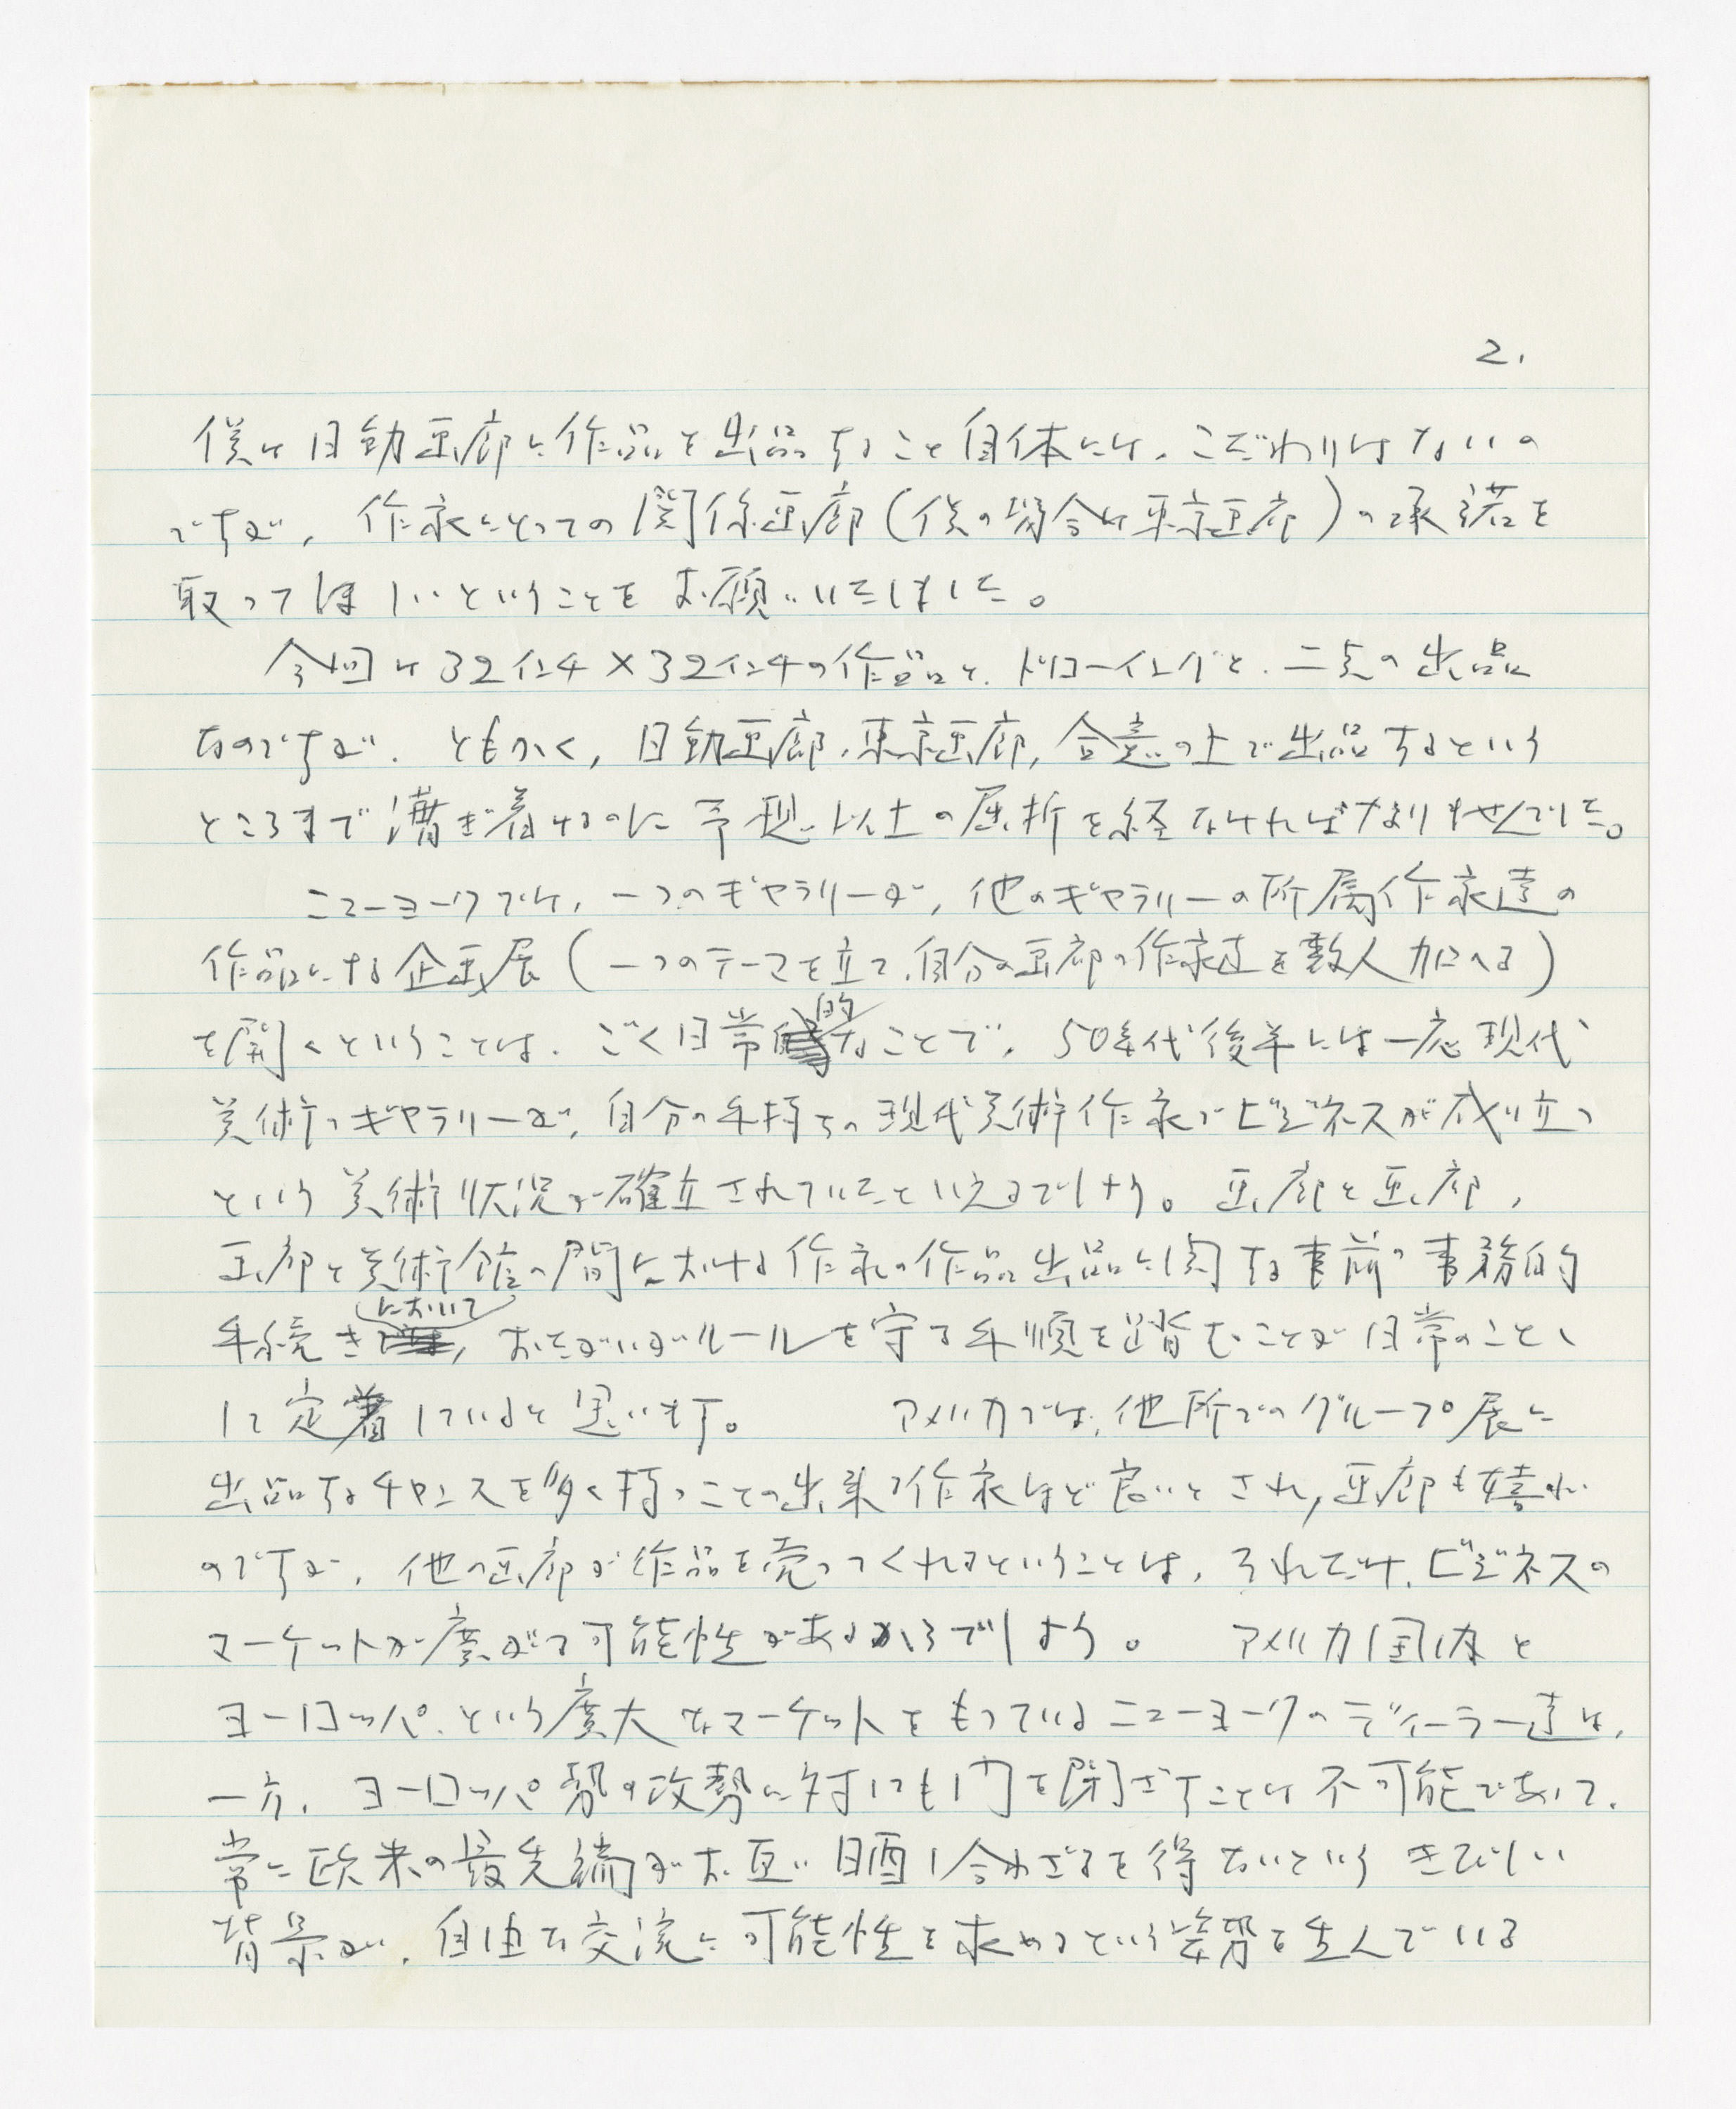 2.
僕は日動画廊に作品を出品すること自体には、こだわりはないの
ですが、作家にとっての関係画廊(僕の場合は東京画廊)の承諾を
取ってほしいということをお願いいたしました。
今回は32インチ×32インチの作品と、ドローイングと、二点の出品
なのですが、ともかく、日動画廊、東京画廊、合意の上で出品するという
ところまで漕ぎ着けるのに予想以上の屈折を経なければなりませんでした。
ニューヨークでは、一つのギャラリーが、他のギャラリーの所属作家達の
作品による企画展(一つのテーマを立て、自分の画廊の作家達を数人加へる)
を開くということは、ごく日常的なことで、50年代後半には一応現代
美術のギャラリーが、自分の手持ちの現代美術作家でビジネスが成り立つ
という美術状況が確立されていたといえるでしょう。画廊と画廊,
画廊と美術館の間における作家の作品出品に関する事前の事務的
手続きにおいて, おたがいがルールを守る手順を踏むことが日常のことゝ
して定着していると思います。 アメリカでは、他所でのグループ展に
出品するチャンスを多く持つことの出来る作家ほど良いとされ,画廊も嬉しい
のですが、他の画廊が作品を売ってくれるということは、それだけ、ビジネスの
マーケットが広がる可能性があるからでしょう。 アメリカ国内と
ヨーロッパ、という広大なマーケットをもっているニューヨークのディーラー達は、
一方、ヨーロッパ勢の攻勢に対しても門を閉ざすことは不可能であって、
常に欧米の最先端がお互い晒し合わざるを得ないというきびしい
背景が、自由な交流に可能性を求めるという姿勢を生んでいる